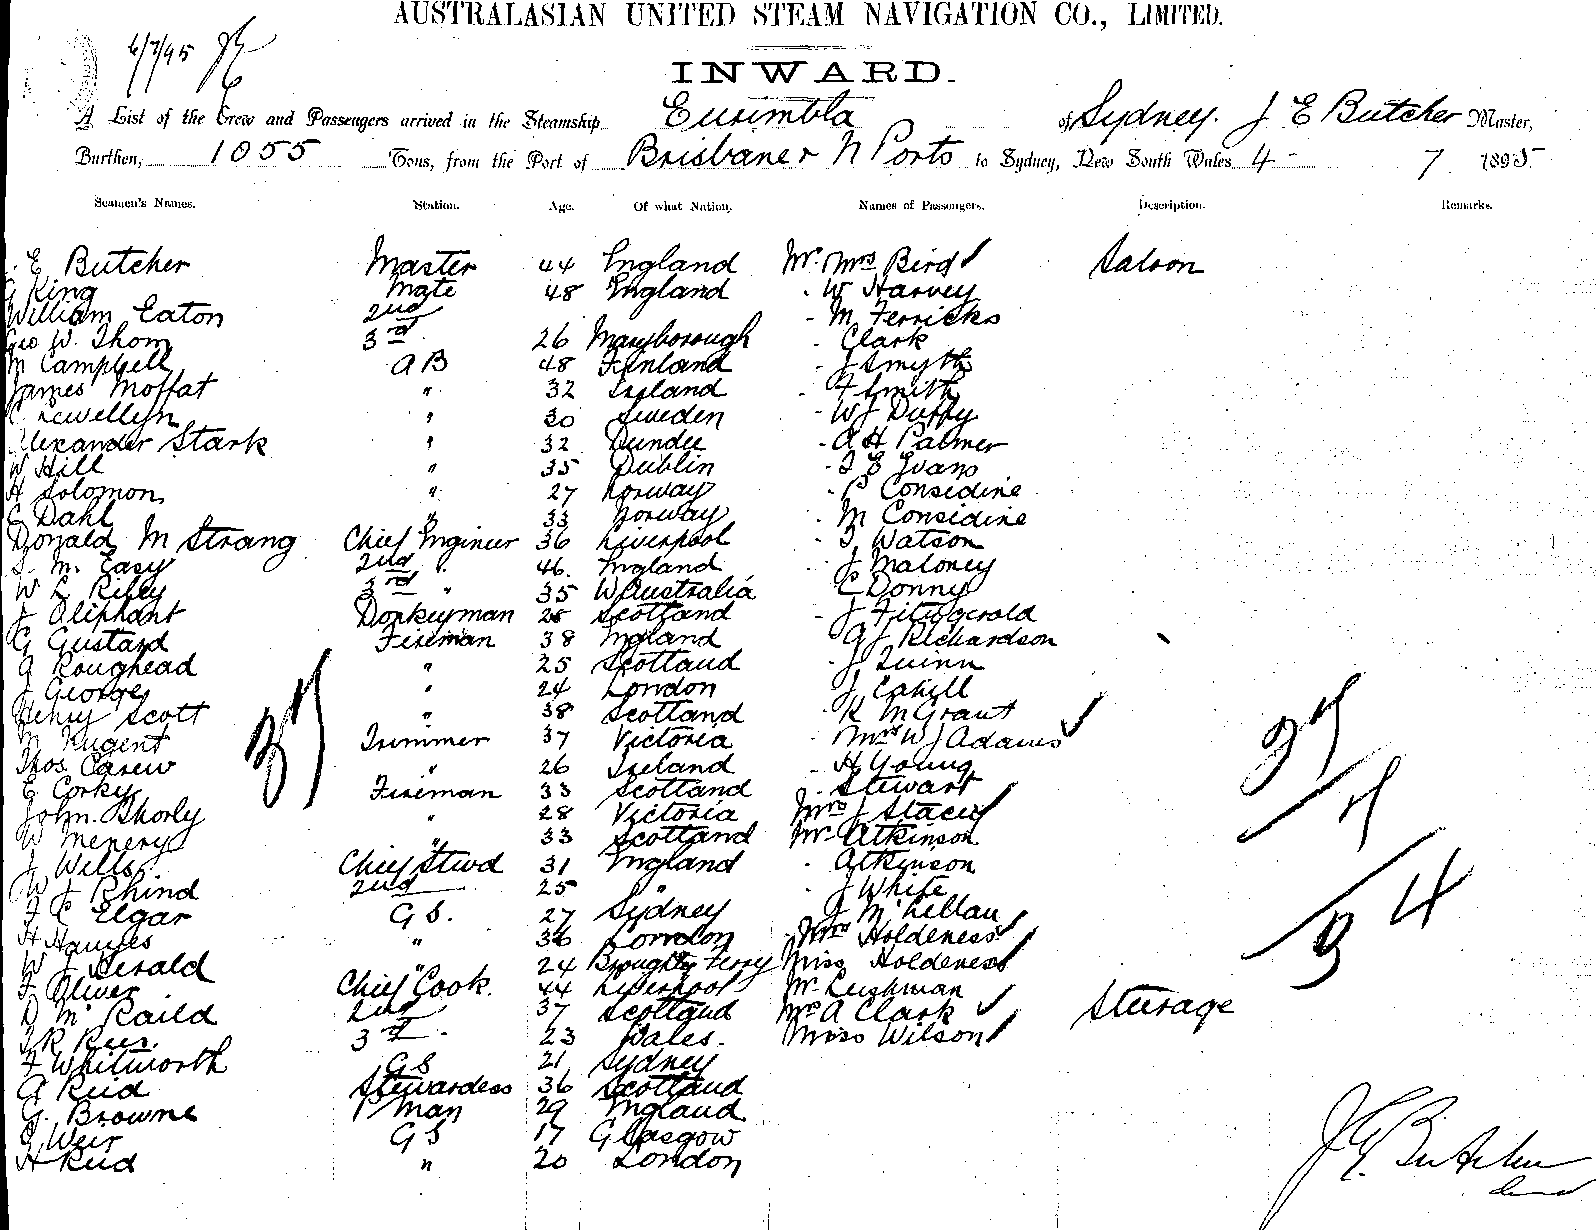 AUSTRALASIAN UNITED STEAM NAVIGATION CO., LIMITED.
6/7/95
INWARD.
A List of the Crew and Passengers arrived in the Steamship Eurimbla of Sydney. J E Butcher Master,
Burthen, 1055 Tons, from the Port of Brisbane & N Ports to Sydney, New South Wales 4 - 7 1895
Seamen's Names. Station. Age. Of what Nation. Names of Passengers. Description. Remarks.
E Butcher Master 44 England Mr. Mrs Bird Saloon
King Mate 48 England - W Harvey
William Eaton 2nd - M Ferricks
Geo W. Thom 3rd 26 Maryborough - Clark
M Campbell AB 48 Finland - J Smyth
James Moffat " 32 Ireland - F Smith
Lewellyn " 30 Sweden - W J Duffy
Alexander Stark " 32 Dundee - A H Palmer
W Hill " 35 Dublin - Evans
H Solomon " 27 Norway - P Considine
C Dahl " 33 Norway - M Considine
Donald M Strang Chief Engineer 36 Liverpool - T Watson
M. Easy 2nd " 46. England - J Maloney
W L Riley 3rd " 35 W Australia C Donny
J Oliphant Donkeyman 25 Scotland - J Fitzgerald
G Gustard Fireman 38 England A J Richardson
A Roughead " 25 Scotland - J Quinn
J George " 24 London J Cahill
Henry Scott " 38 Scotland - K McGrant
M Nugent Trimmer 37 Victoria - Mrs W J Adams
Thos. Carew " 26 Ireland - H Young
E Corky Fireman 33 Scotland - Stewart
John. Shorly " 28 Victoria Mrs J Stacey
W Menery " 33 Scotland Mr Atkinson
J Wills. Chief Stwd 31 England - Atkinson
W J Rhind 2nd 25 " J White
F C Elgar G S. 27 Sydney - J McLellan
H Hawes " 36 London - Mrs Holdeness
W J Herald " 24 Broughty Ferry Miss Holdeness
F Oliver Chief Cook. 44 Liverpool Mr Lushman
D Mc Raild 2nd " 37 Scotland Mrs A Clark Steerage
R Rees. 3rd 23 Wales. Miss Wilson
F Whitworth G S 21 Sydney
A Reid Stewardess 36 Scotland
G. Browne P man 29 England
Weir G S 17 Glasgow
H Reid " 20 London
37
37
34
J E Butcher